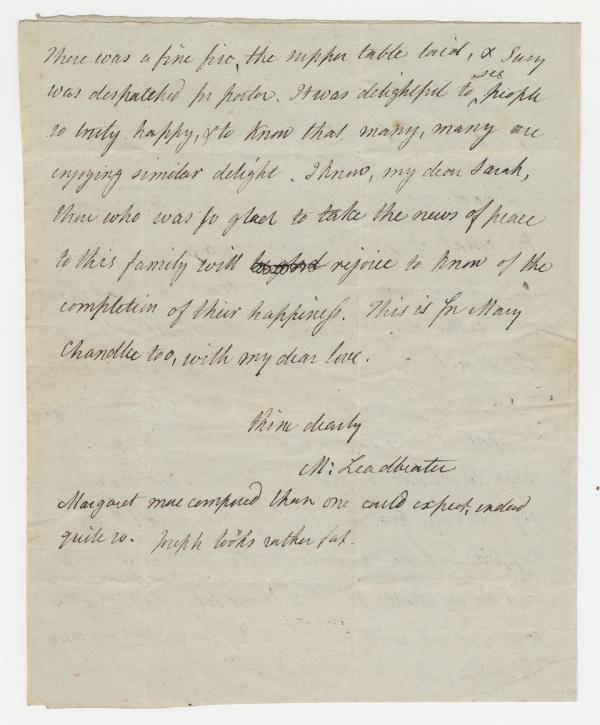 There was a fine fire, the supper table laid, & Susy
was despatched for porter. It was delightful to see people
so truly happy, & to know that many, many are
enjoying similar delight. I know, my dear Sarah,
thou who was so glad to take the news of peace
to this family will be glad rejoice to know of the
completion of their happiness. This is for Mary
Chandlee too, with my dear love.
thine dearly
M: Leadbeater
Margaret more composed than one could expect, indeed
quite so. Joseph looks rather fat.